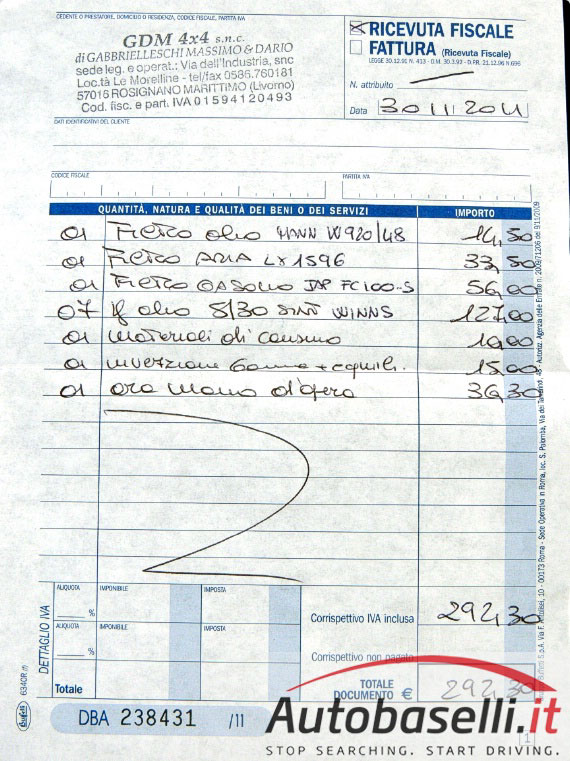 CEDENTE O PRESTATORE, DOMICILIO O RESIDENZA, CODICE FISCALE, PARTITA IVA
GDM 4x4 s.n.c.
di GABBRIELLESCHI MASSIMO & DARIO
sede leg. e operat.: Via dell'Industria, snc
Loc.tà Le Morelline - tel/fax 0586.760181
57016 ROSIGNANO MARITTIMO (Livorno)
Cod. fisc. e part. IVA 01594120493
RICEVUTA FISCALE
FATTURA (Ricevuta Fiscale)
LEGGE 30.12.91 N. 413 - D.M. 30.3.92 - D.P.R. 21.12.96 N.696
N. attribuito
Data 30 11 2011
DATI IDENTIFICATIVI DEL CLIENTE
CODICE FISCALE PARTITA IVA
QUANTITÀ, NATURA E QUALITÀ DEI BENI O DEI SERVIZI IMPORTO
01 Filtro olio MANN W920/48 14,50
01 Filtro ARIA LX1596 33,50
01 Filtro GASOLIO JAP FC100-S 56,00
07 lt olio 5/30 SINT WINNS 127,00
01 materiali di consumo 10,00
01 inversione Gomme + equili. 15,00
01 ora mano d'opera 36,30
DETTAGLIO IVA
ALIQUOTA IMPONIBILE IMPOSTA
%
Corrispettivo IVA inclusa 292,30
ALIQUOTA IMPONIBILE IMPOSTA
%
Corrispettivo non pagato
Totale
TOTALE DOCUMENTO € 292,30
DBA 238431 /11
Autobaselli.it
STOP SEARCHING. START DRIVING.